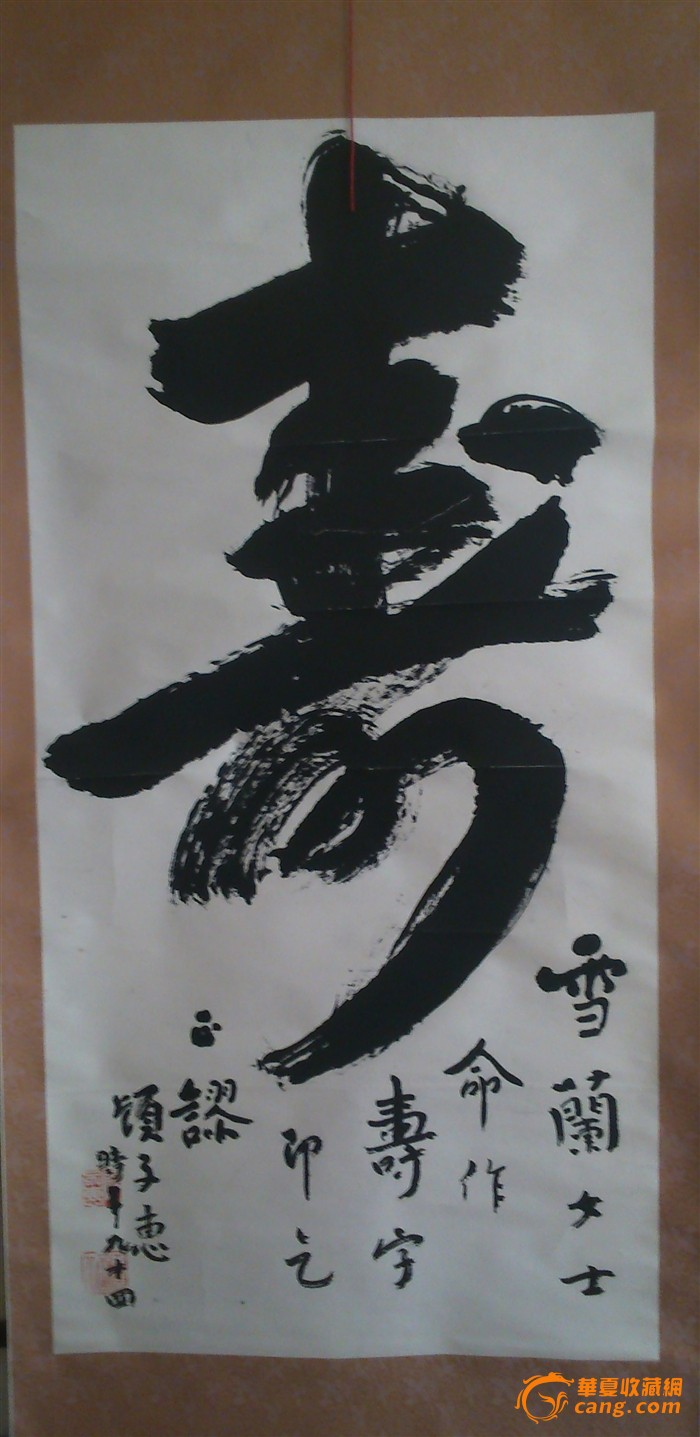 壽
雪蘭女士
命作
壽字
即乞
謬正
頎子惠
時年九十四
華夏收藏網
cang.com